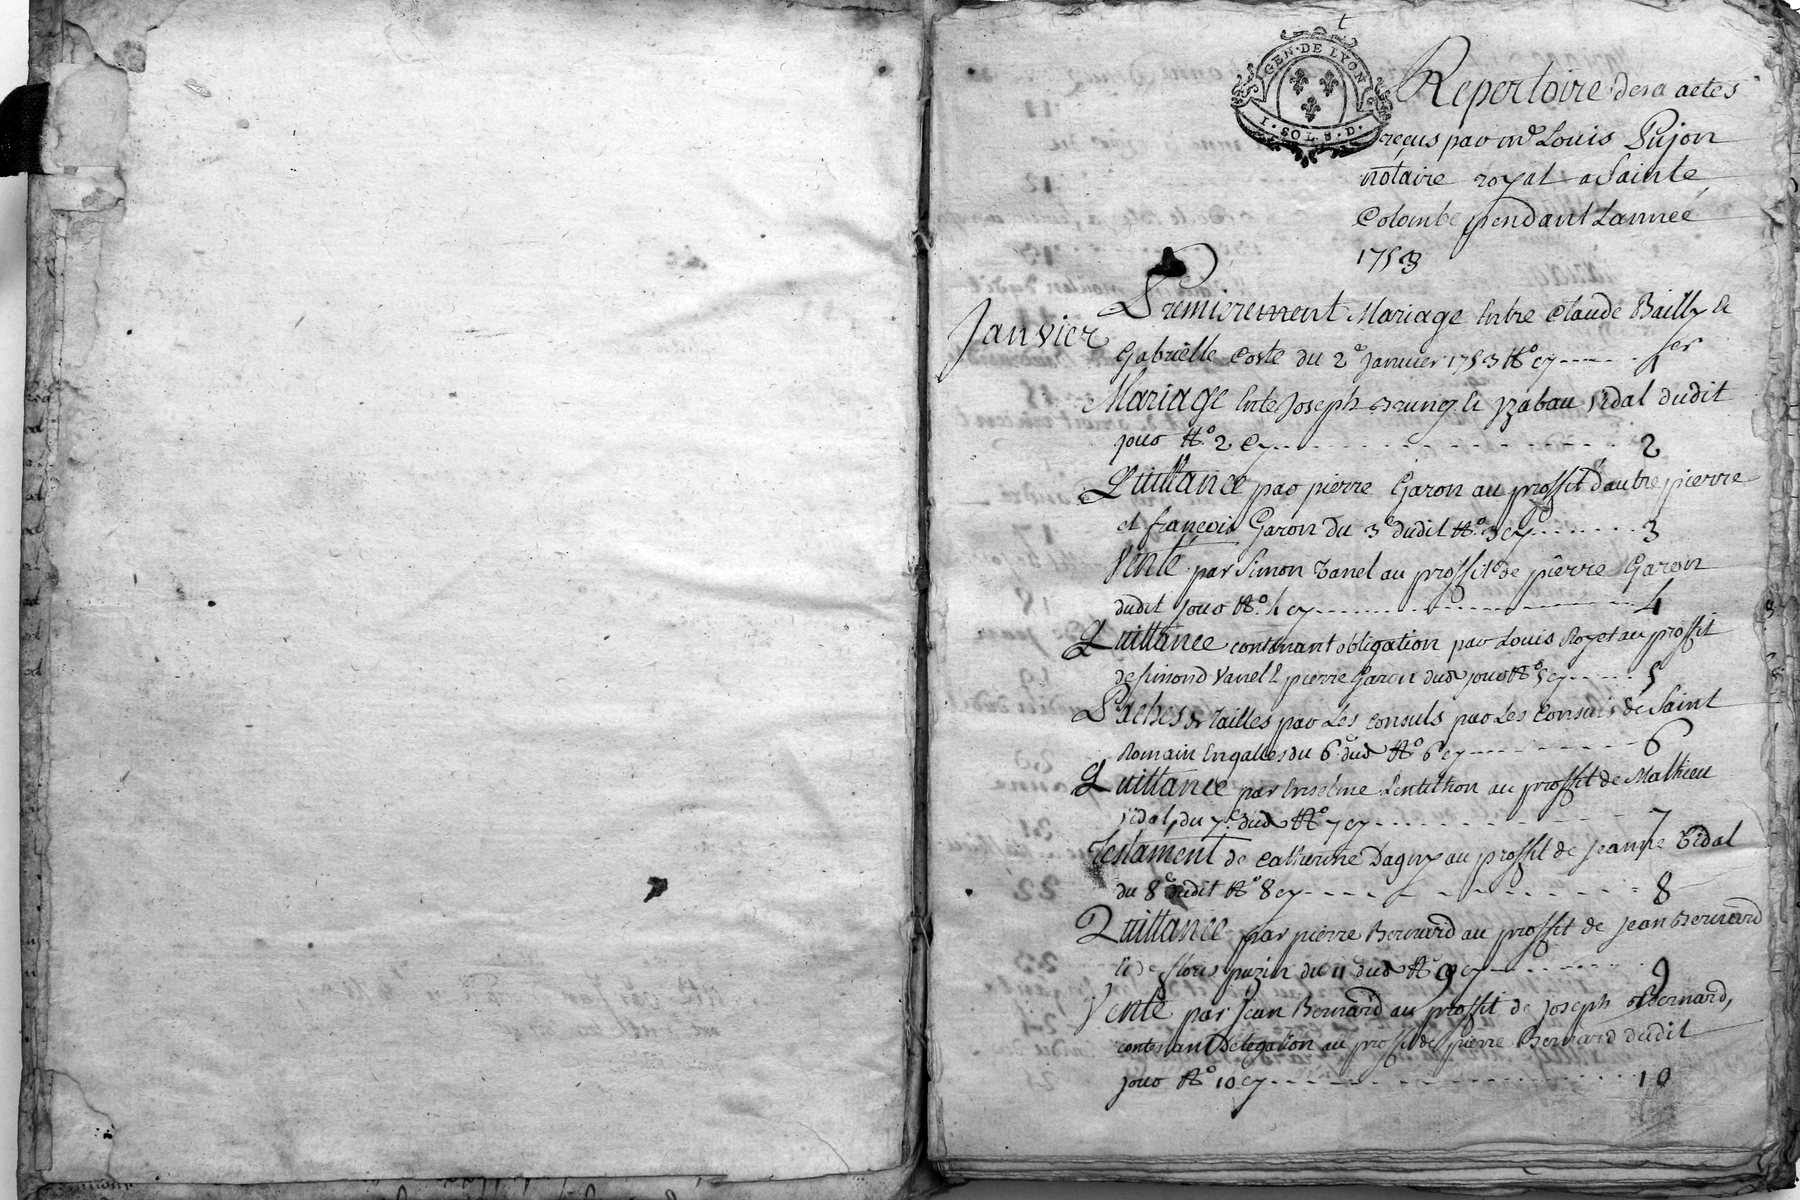 GEN·DE LYON
1·SOL 8·D·
Repertoire des actes
reçus par me Louis Pujon
notaire royal a Sainte
Colombe pendant Lannéé
1753
Janvier
Premierement Mariage Entre Claude Bailly Et
Gabriëlle Coste du 2e Janvier 1753 No cy 1er
Mariage Entre Joseph Et yzabau vidal dudit
jour No 2 cy 2
Quittance par pierre Garon au proffit d'autre pierre
et françois Garon du 3e dudit No 3 cy 3
Vente par Simon Vanel au proffit de pierre Garon
dudit jour No 4 cy 4
Quittance contenant obligation par Louis Royet au proffit
de simond Vanel & pierre Garon dud jour No 5 cy 5
Paches de Tailles par Les consuls par Les Consuls de Saint
Romain du 6e dud No 6 cy 6
Quittance par Lentithon au proffit de Mathieu
vidal, du 7e dud No 7 cy 7
Testament de Catherine Dagny au proffit de Jeanne Vidal
du 8e dudit No 8 cy 8
Quittance par pierre Bernard au proffit de Jean Bernard
Et de floris puzin du 11e dud No 9 cy 9
Vente par Jean Bernard au proffit de Joseph Bernard,
contenant Delegation au proffit de pierre Bernard dudit
jour No 10 cy 10